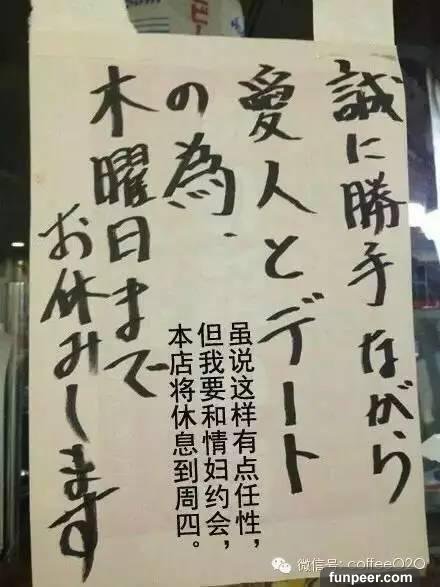 誠に勝手ながら
愛人とデート
の為、
木曜日まで
お休みします
虽说这样有点任性，
但我要和情妇约会，
本店将休息到周四。
微信号: coffeeO2O
funpeer.com